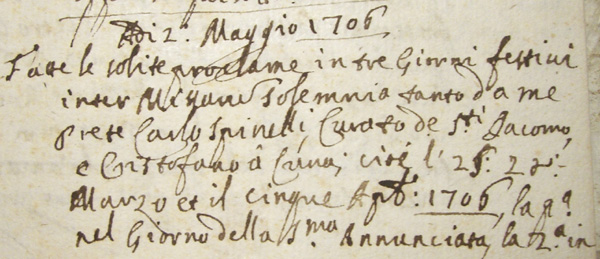 Adi 2: Maggio 1706
Fatte le solite proclame in tre Giorni festivi
inter Missarū Solemnia tanto da me
Prete Carlo Spinelli, Curato de S.ti Jacomo,
e Cristofano à Cuna; cioè l' 25:
Marzo et il cinque Ap.le: 1706, la p.a
nel Giorno della S.ma Annunciata, la 2.a in